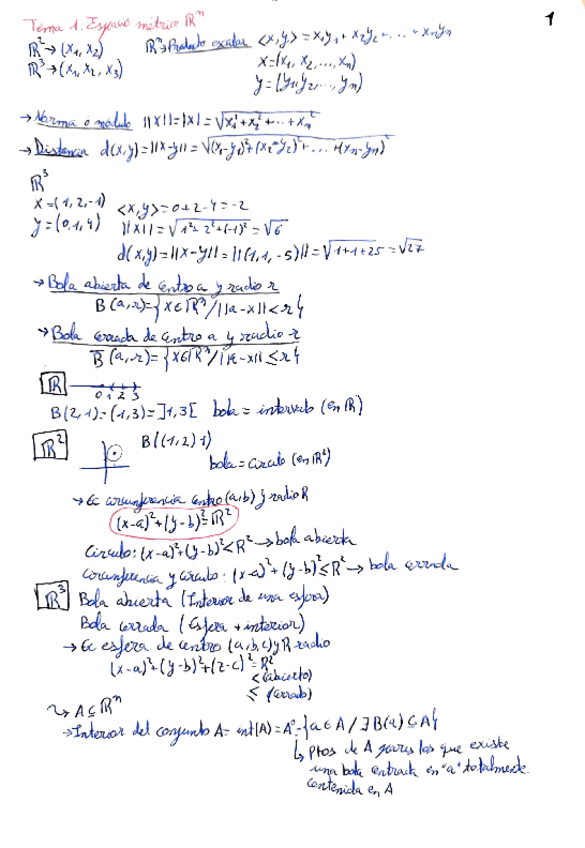 Tema 1. Espacio métrico ℝⁿ
1
ℝ² → (x₁, x₂)
ℝⁿ → Producto escalar <x,y> = x₁y₁ + x₂y₂ + ... + xₙyₙ
ℝ³ → (x₁, x₂, x₃)
x = (x₁, x₂, ..., xₙ)
y = (y₁, y₂, ..., yₙ)
→ Norma o módulo ||x|| = |x| = √(x₁² + x₂² + ... + xₙ²)
→ Distancia d(x,y) = ||x-y|| = √((x₁-y₁)² + (x₂-y₂)² + ... + (xₙ-yₙ)²)
ℝ³
x = (1, 2, -1)
<x,y> = 0+2-4 = -2
y = (0, 1, 4)
||x|| = √(1²+2²+(-1)²) = √6
d(x,y) = ||x-y|| = ||(1, 1, -5)|| = √(1+1+25) = √27
→ Bola abierta de centro a y radio r
B(a,r) = {x∈ℝⁿ / ||a-x|| < r}
→ Bola cerrada de centro a y radio r
B̅(a,r) = {x∈ℝⁿ / ||a-x|| ≤ r}
ℝ
0 1 2 3
B(2,1) = (1,3) = ]1,3[ bola = intervalo (en ℝ)
ℝ²
B((1,2) 1)
bola = círculo (en ℝ²)
→ Ec circunferencia centro (a,b) y radio R
(x-a)² + (y-b)² = R²
Círculo: (x-a)² + (y-b)² < R² → bola abierta
Circunferencia y círculo: (x-a)² + (y-b)² ≤ R² → bola cerrada
ℝ³ Bola abierta (Interior de una esfera)
Bola cerrada (Esfera + interior)
→ Ec esfera de centro (a,b,c) y R radio
(x-a)² + (y-b)² + (z-c)² = R²
< (abierto)
≤ (cerrado)
↝ A ⊆ ℝⁿ
→ Interior del conjunto A = int(A) = A° = {a ∈ A / ∃ B(a) ⊆ A}
↳ Ptos de A para los que existe
una bola centrada en "a" totalmente
contenida en A